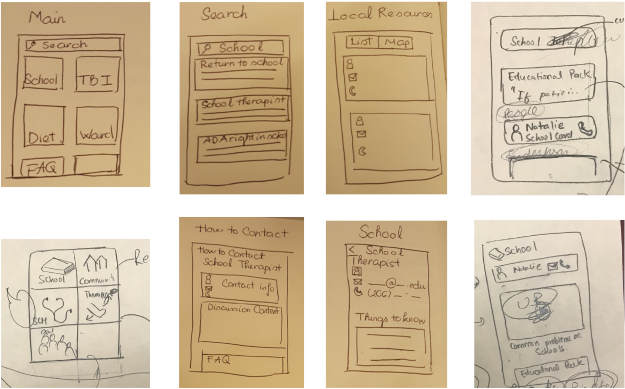 Main
Search
School TBI
Diet Ward
FAQ
Search
School
Return to school
School therapist
ADA right in school
Local Resources
List Map
School
Educational Pack
"If patici...
People
Natalie
School Coord
School
Community
Therapy
SCH
Re
How to Contact
How to Contact
School Therapist
Contact info
Discussion Content
FAQ
School
< School
Therapist
@ .edu
(206) - -
Things to know
School
Natalie
Common problems on
Schools.
Educational Pack